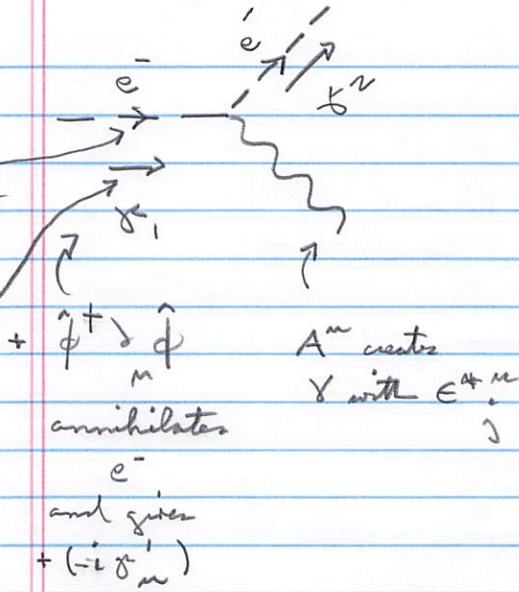 e⁻
e⁻
+ φ̂† ∂_μ φ̂
annihilates
e⁻
and gives
A^μ creates
γ with ϵ*^μ_j